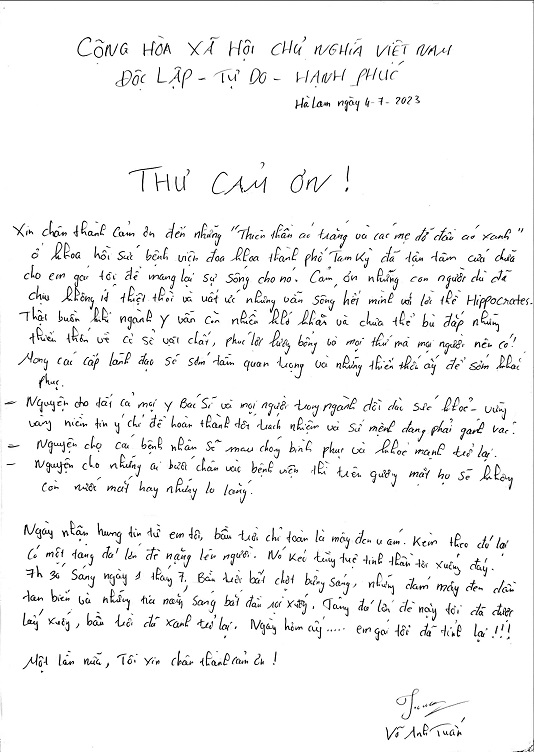 CỘNG HÒA XÃ HỘI CHỦ NGHĨA VIỆT NAM
ĐỘC LẬP - TỰ DO - HẠNH PHÚC
Hà Lam ngày 4-7-2023
THƯ CẢM ƠN !
Xin chân thành cảm ơn đến những "Thiên thần áo trắng và các mẹ đỡ đầu áo xanh"
ở khoa hồi sức bệnh viện đa khoa thành phố Tam Kỳ đã tận tâm cứu chữa
cho em gái tôi để mang lại sự sống cho nó. Cảm ơn những con người dù đã
chịu không ít thiệt thòi và vất vả nhưng vẫn sống hết mình với lời thề Hippocrates.
Thật buồn khi ngành Y vẫn còn nhiều khó khăn và chưa thể bù đắp những
thiên thần về cơ sở vật chất, phúc lợi lương bổng và mọi thứ mà mọi người nên có!
Mong các cấp lãnh đạo sẽ sớm tầm quan trọng và những thiếu thốn ấy để sớm khắc
phục.
- Nguyện cho tất cả mọi y Bác Sĩ và mọi người trong ngành dồi dào sức khoẻ - vững
vàng niềm tin ý chí để hoàn thành tốt trách nhiệm và sứ mệnh đang phải gánh vác.
- Nguyện cho các bệnh nhân sẽ mau chóng bình phục và khoẻ mạnh trở lại.
- Nguyện cho những ai bước chân vào bệnh viện thì trên gương mặt họ sẽ không
còn nước mắt hay những lo lắng.
Ngày nhận hung tin từ em tôi, bầu trời chỉ toàn là mây đen u ám. Kèm theo đó lại
có một tảng đá lớn đè nặng lên người. Nó kéo từng tinh thần tôi xuống đáy.
7h 30 Sáng ngày 1 tháng 7. Bầu trời bất chợt bừng sáng, những đám mây đen dần
tan biến và những tia nắng sáng bắt đầu rọi xuống. Tảng đá lớn đè này tôi đã được
lấy xuống, bầu trời đã xanh trở lại. Ngày hôm ấy..... em gái tôi đã tỉnh lại !!!
Một lần nữa, Tôi xin chân thành cảm ơn !
Võ Anh Tuấn